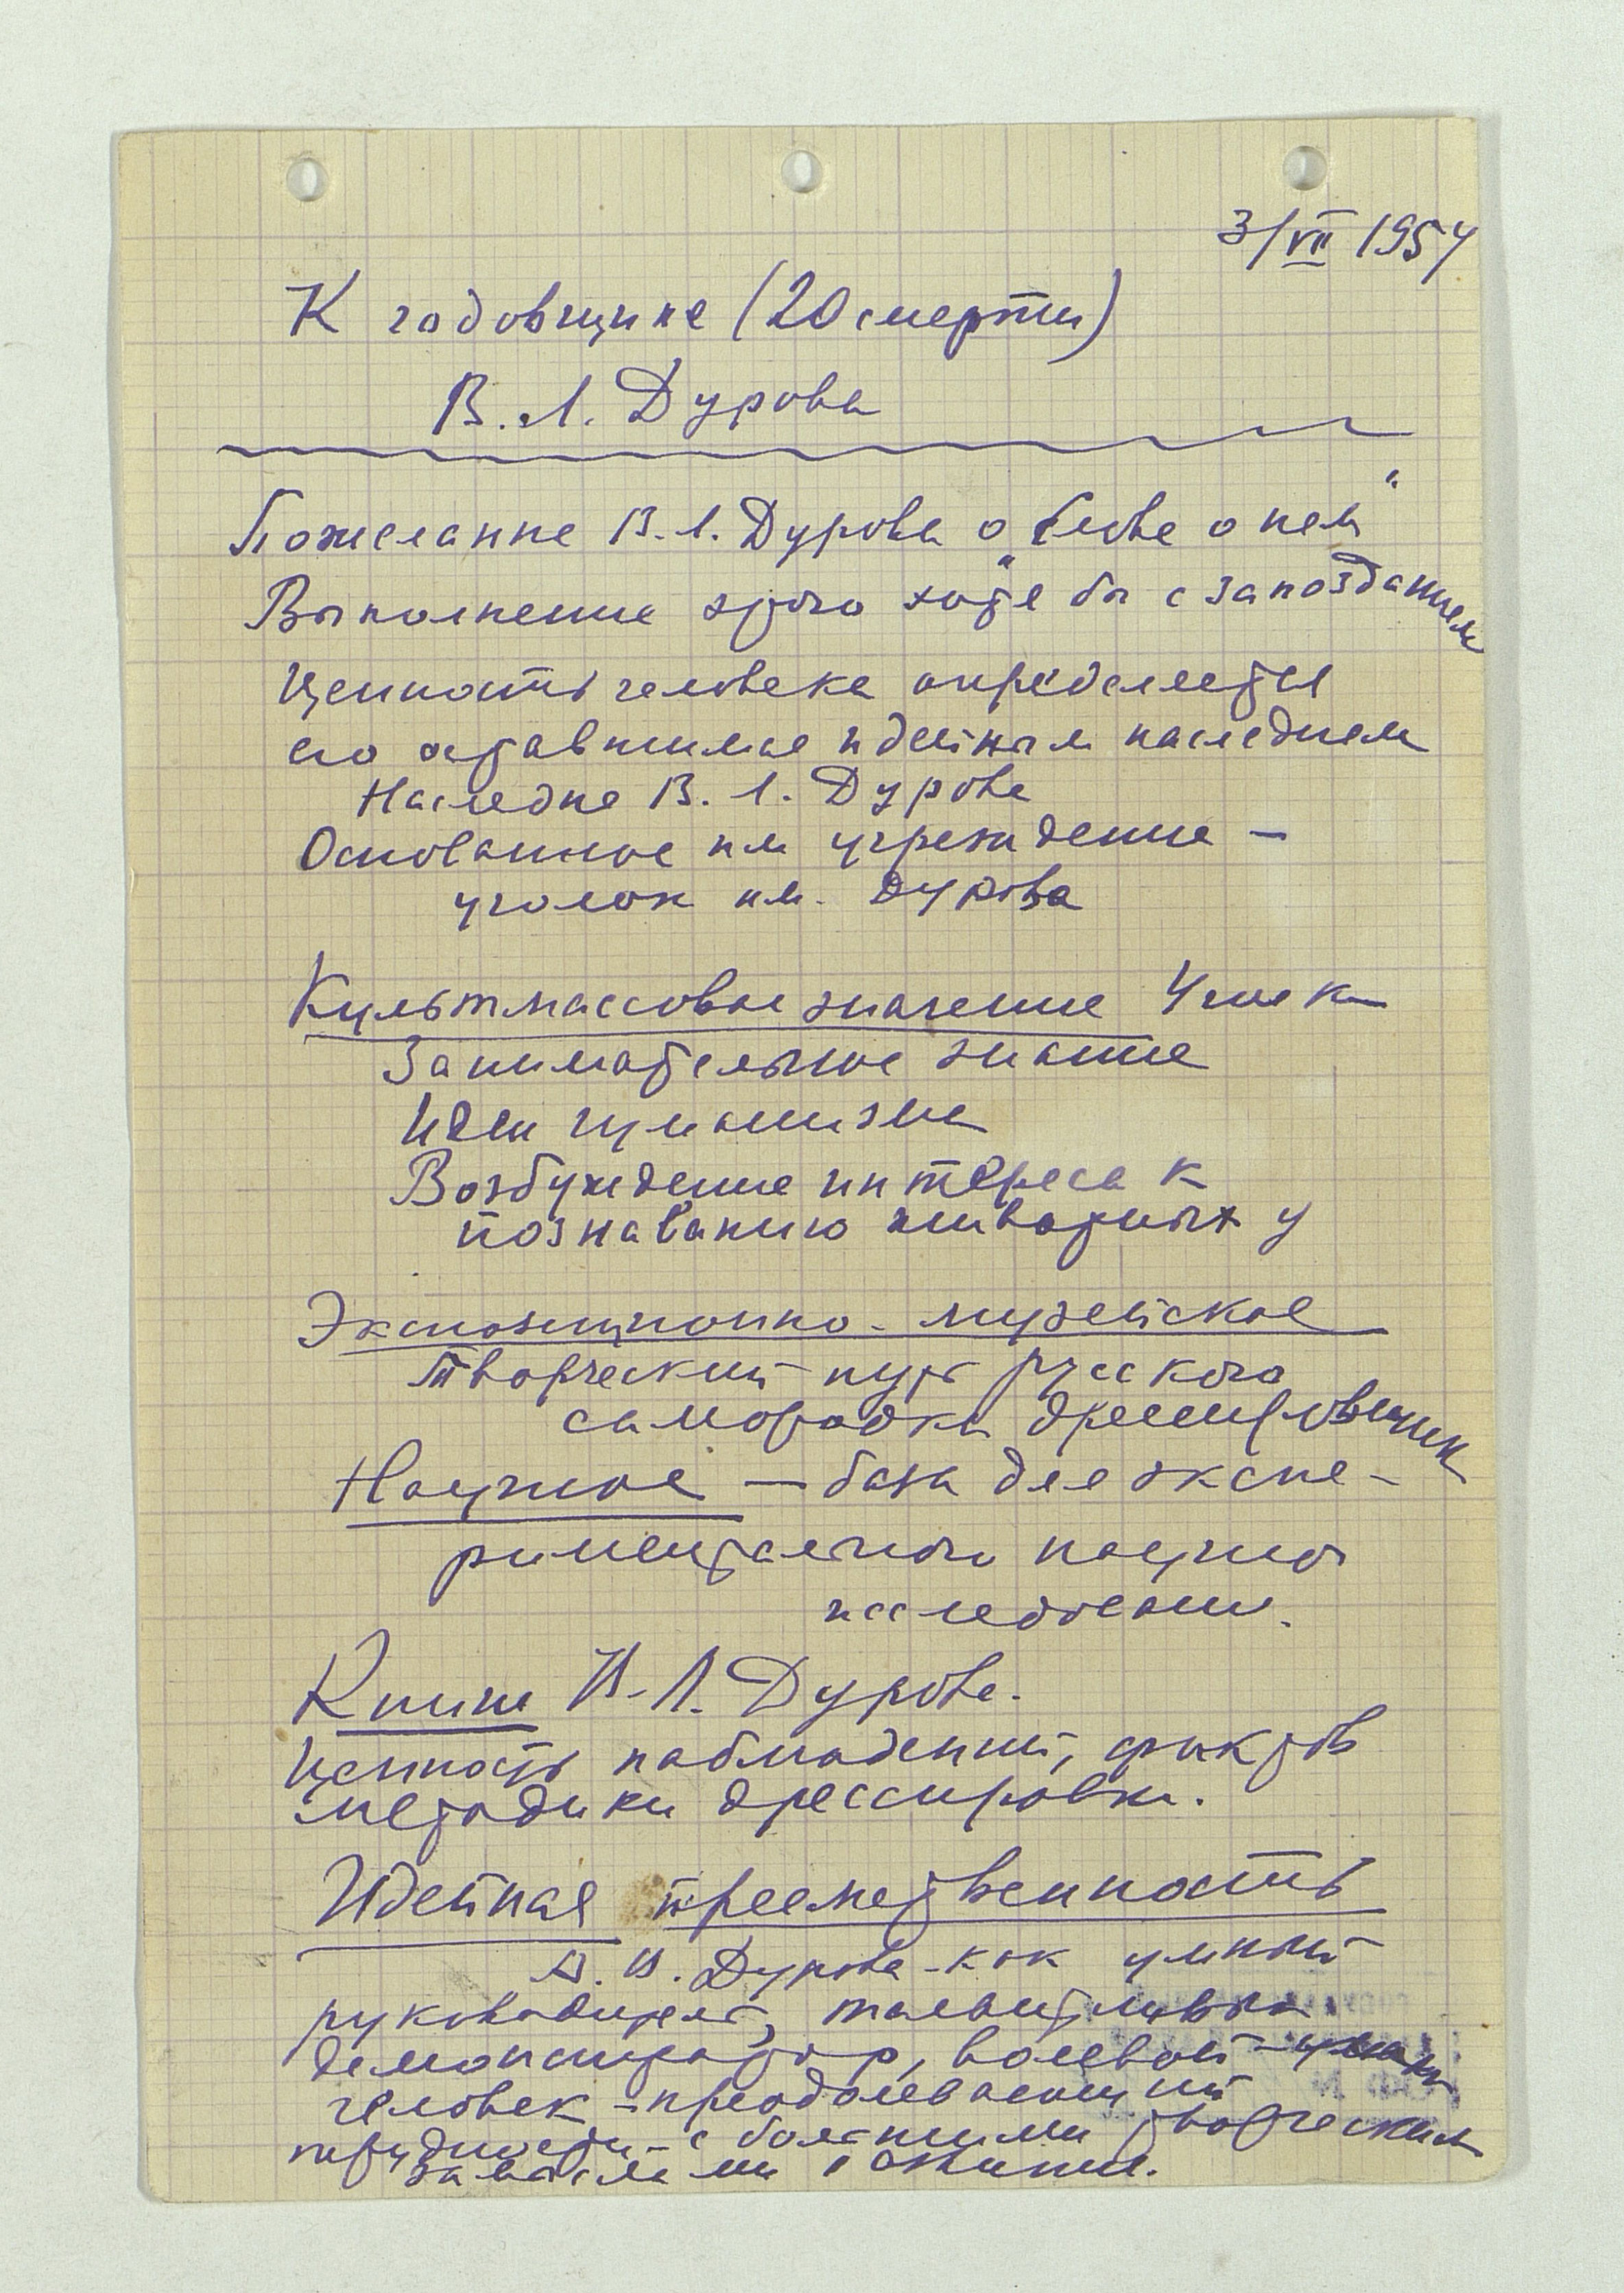 3/VII 1954
К годовщине (20 смерти)
В. Л. Дурова
Пожелание В. Л. Дурова о „Слове о нем“
Выполнение этого хотя бы с запозданием
Ценность человека определяется
его оставшимся идейным наследием
Наследие В. Л. Дурова
Основанное им учреждение —
уголок им. Дурова
Культмассовое значение Уголка
Занимательное знание
Идеи гуманизма
Возбуждение интереса к
познаванию животных у
Экспозиционно-музейское
Творческий путь русского
самородка дрессировщика
Научное — база для экспе-
риментального научного
исследования.
Книги В. Л. Дурова.
Ценность наблюдений, фактов
методики дрессировки.
Идейная преемственность
А. В. Дурова - как умный
руководитель, талантливый
демонстратор, волевой -
человек - преодолевающий
трудности - с большими творческими
замыслами